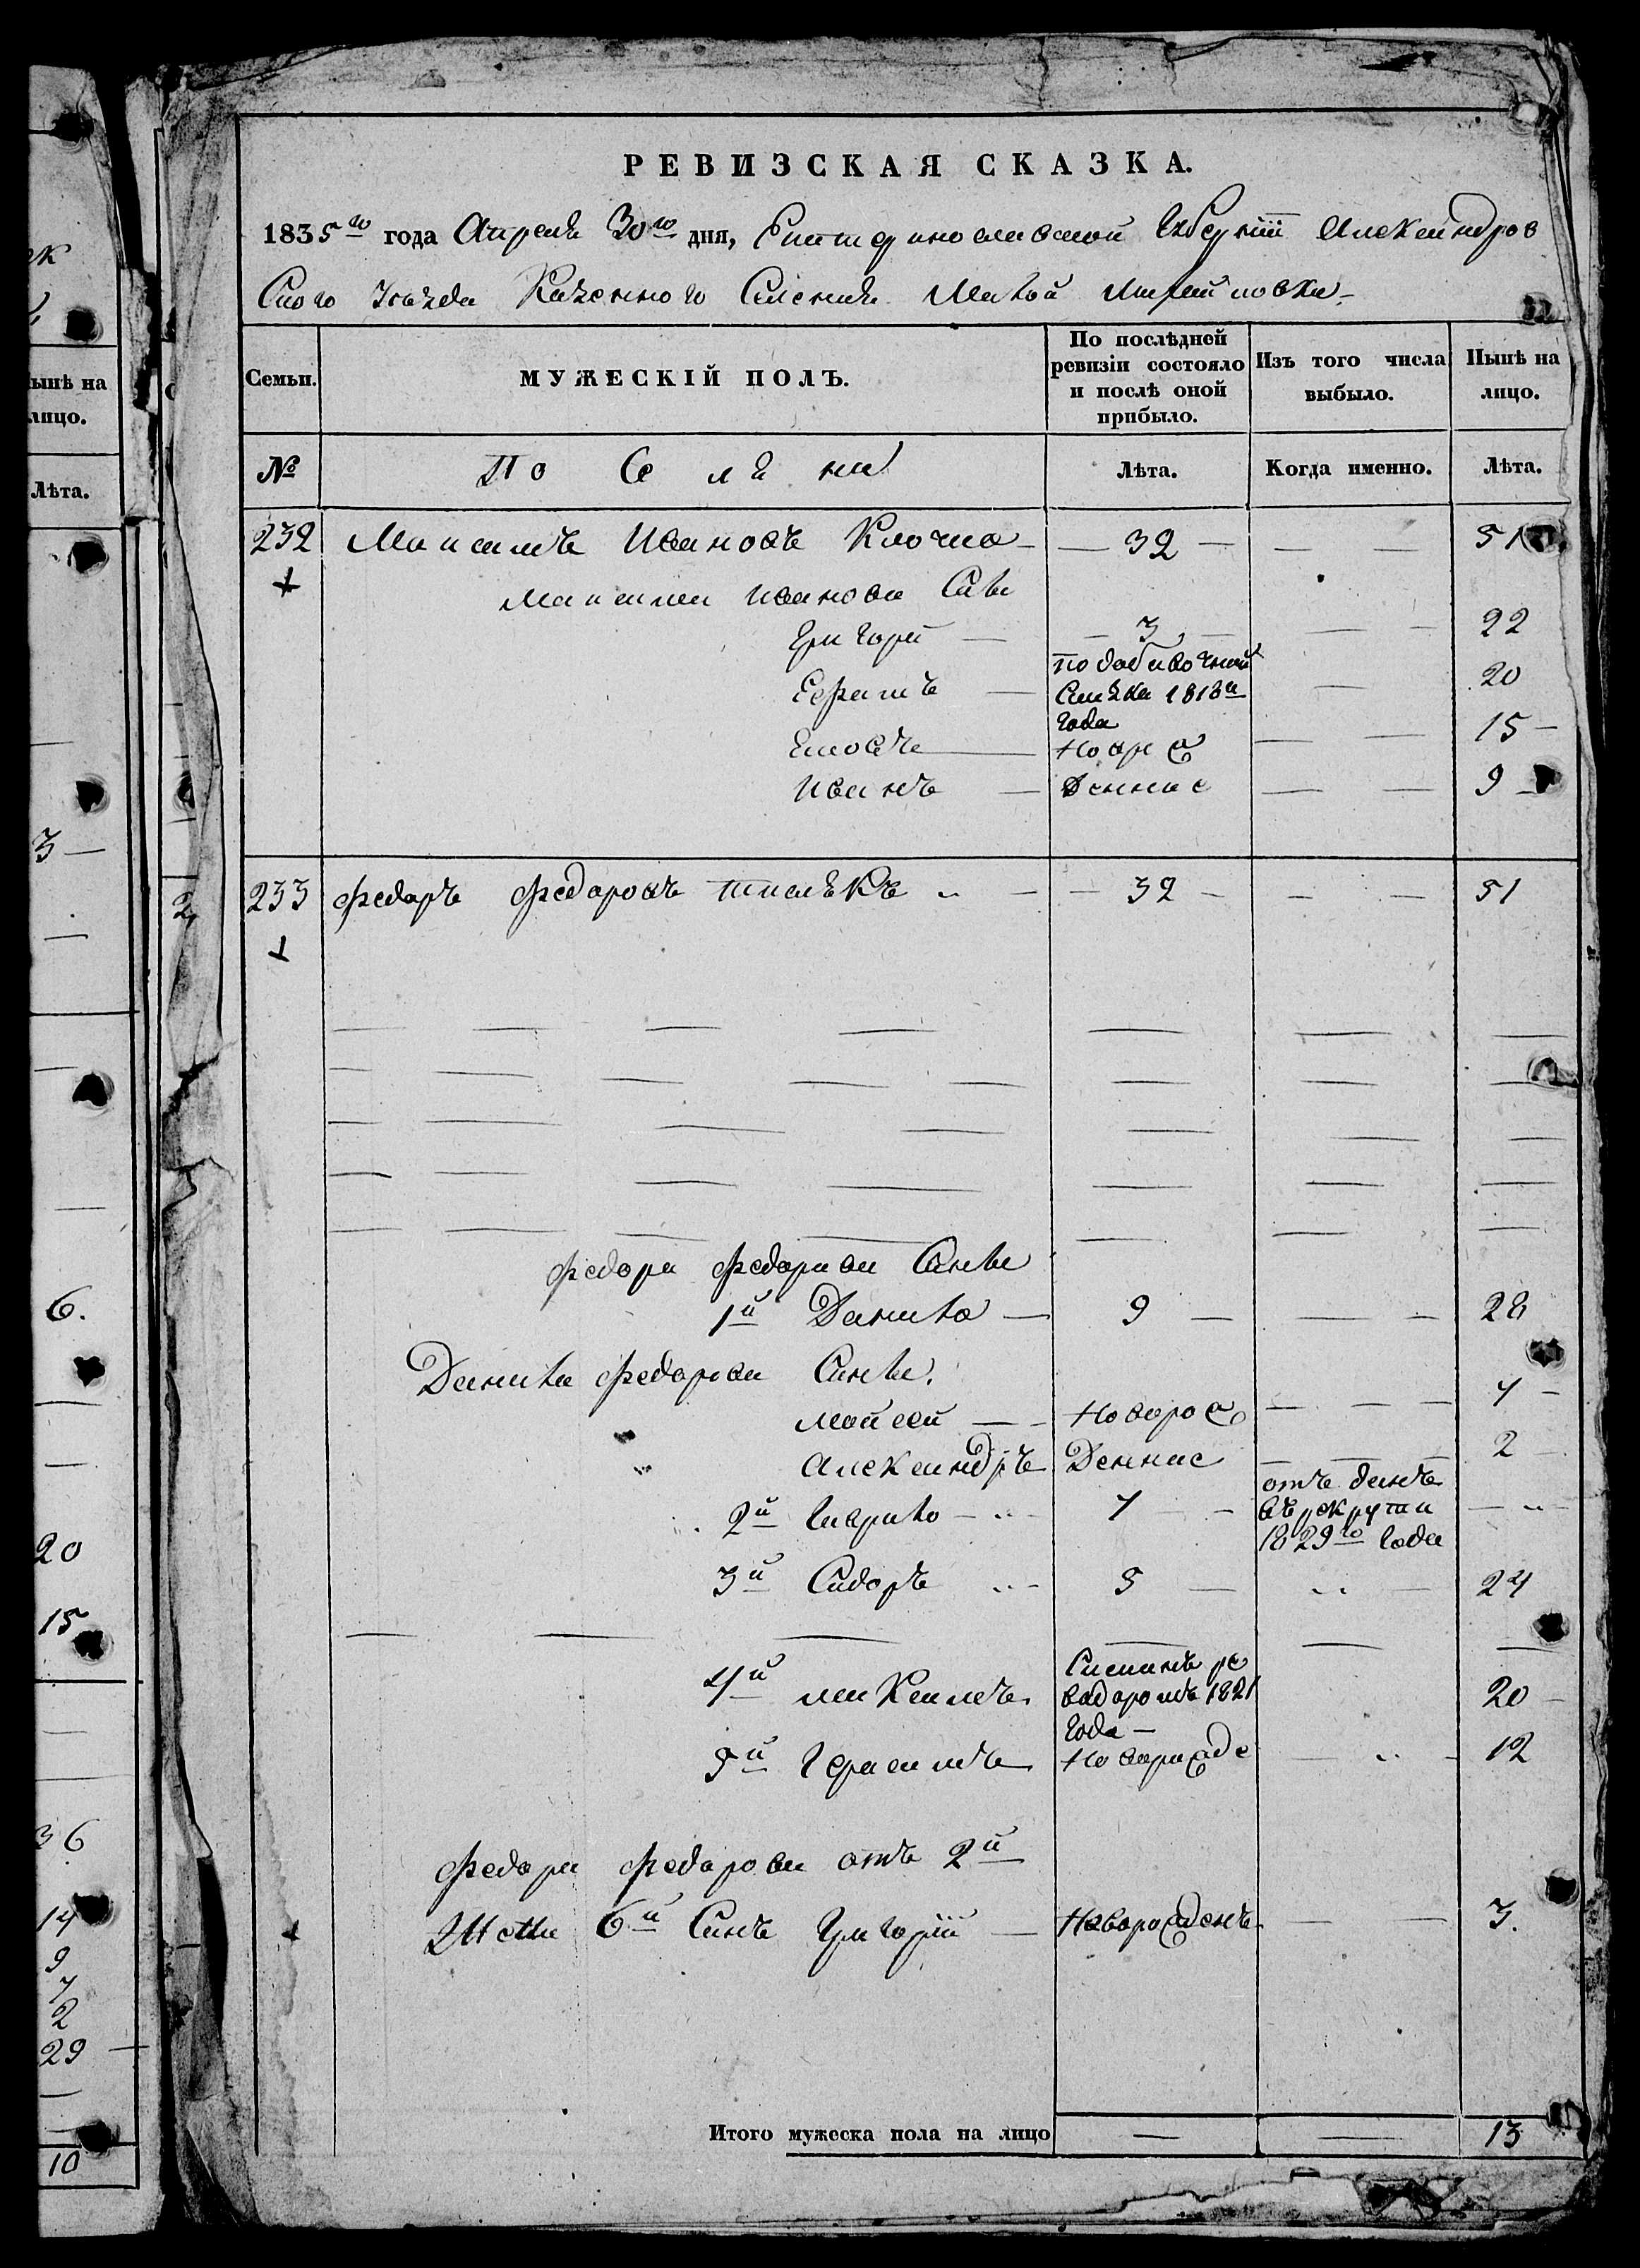 ек
ынѣ на
лицо.
Лѣта.
3 —
6.
20
15
36
14
9
7
2
29
10
РЕВИЗСКАЯ СКАЗКА.
1835го года Апреля 30го дня, Екатеринославской Губернии Александров
Ского Уезда Казенного Селения Малой Михайловки
Семьи. МУЖЕСКІЙ ПОЛЪ. По послѣдней ревизіи состояло и послѣ оной прибыло. Изъ того числа выбыло. Нынѣ на лицо.
№ Поселяне Лѣта. Когда именно. Лѣта.
232 Максимъ Ивановъ Клочко — 32 — — — 51
Максима Иванова Сны
Григорй — — 3 — — — 22
Ефимъ — по добавочной Скаска 1813й года — 20
— новоро — — 15 —
Иванъ — денние — — 9 —
233 Федоръ Федоровъ — 32 — — — 51
Федора Федорова Сины
1й Данило — 9 — — — 28
Данила Федорова Сины.
Мойсей — — новоро — — 7 —
Александръ Денние — — 2 —
2й Гаврило — 7 — отъ данъ въ рекрути 1829го года —
3й Сидоръ 5 — — 24
4й Максимъ 1821 года — 20 —
5й Герасимъ новорожде — 12
Федора Федорова отъ 2й
Жены 6й Синъ Григорій — Новорожденъ — — 3.
Итого мужеска пола на лицо — — 13